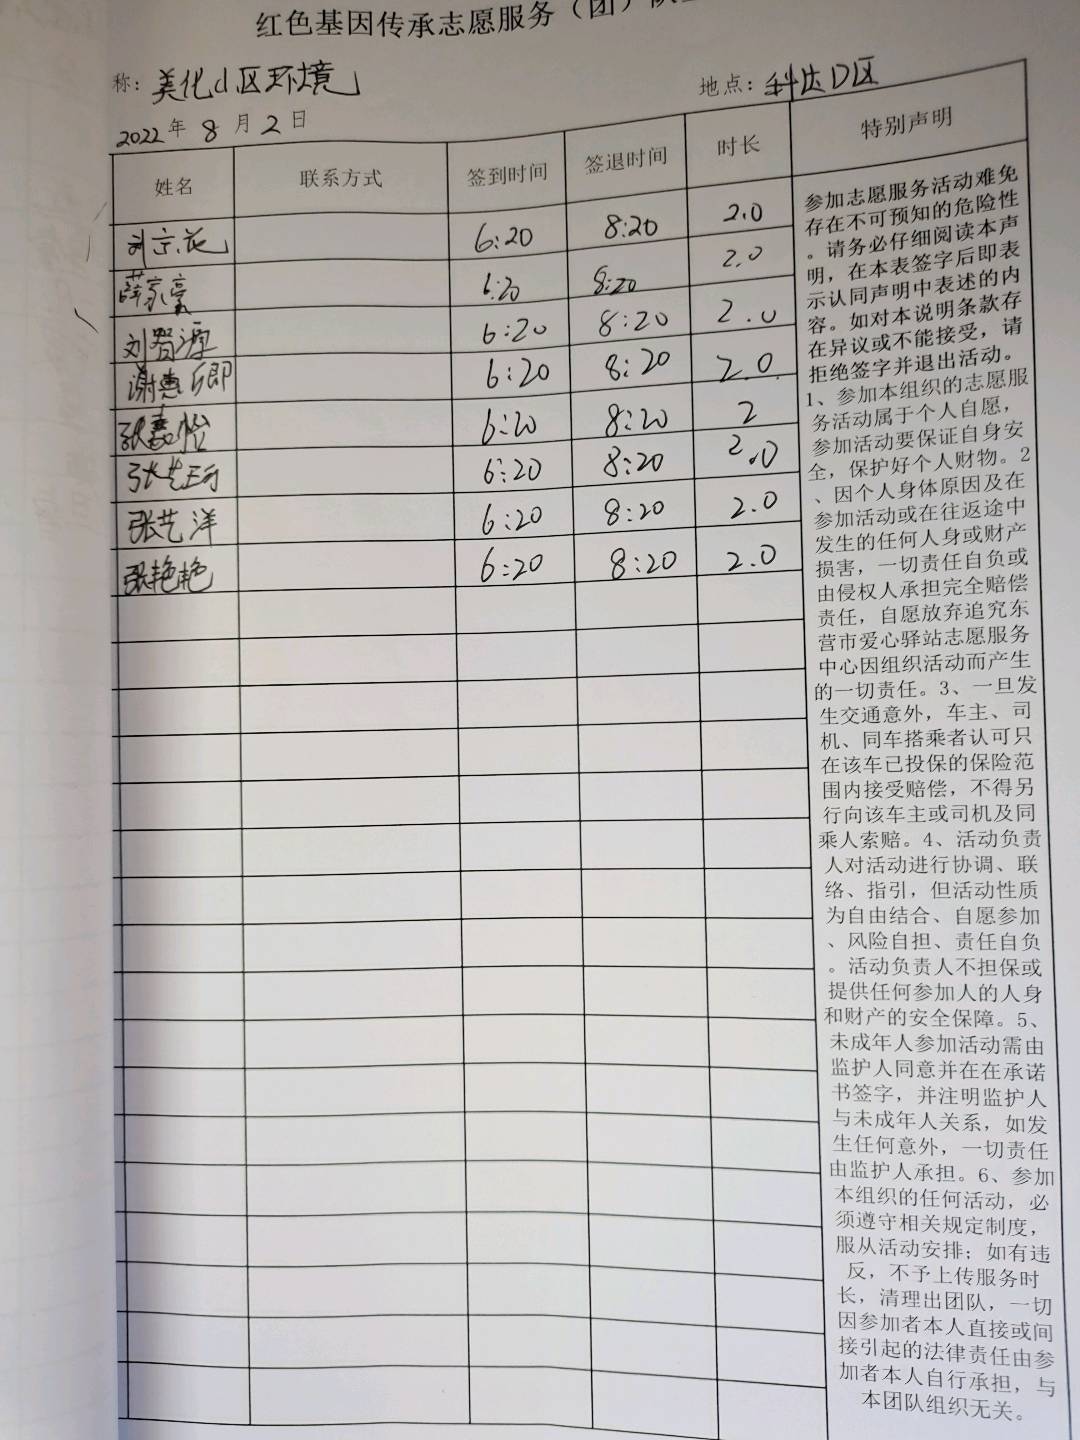 红色基因传承志愿服务（团）队
称：美化小区环境
地点：科达D区
2022年8月2日
姓名 联系方式 签到时间 签退时间 时长 特别声明
刘京花 6:20 8:20 2.0
薛家豪 6:20 8:20 2.0
刘智源 6:20 8:20 2.0
谢惠卿 6:20 8:20 2.0
张嘉怡 6:20 8:20 2
张艺 6:20 8:20 2.0
张艺洋 6:20 8:20 2.0
张艳艳 6:20 8:20 2.0
参加志愿服务活动难免
存在不可预知的危险性
。请务必仔细阅读本声
明，在本表签字后即表
示认同声明中表述的内
容。如对本说明条款存
在异议或不能接受，请
拒绝签字并退出活动。
1、参加本组织的志愿服
务活动属于个人自愿，
参加活动要保证自身安
全，保护好个人财物。2
、因个人身体原因及在
参加活动或在往返途中
发生的任何人身或财产
损害，一切责任自负或
由侵权人承担完全赔偿
责任，自愿放弃追究东
营市爱心驿站志愿服务
中心因组织活动而产生
的一切责任。3、一旦发
生交通意外，车主、司
机、同车搭乘者认可只
在该车已投保的保险范
围内接受赔偿，不得另
行向该车主或司机及同
乘人索赔。4、活动负责
人对活动进行协调、联
络、指引，但活动性质
为自由结合、自愿参加
、风险自担、责任自负
。活动负责人不担保或
提供任何参加人的人身
和财产的安全保障。5、
未成年人参加活动需由
监护人同意并在在承诺
书签字，并注明监护人
与未成年人关系，如发
生任何意外，一切责任
由监护人承担。6、参加
本组织的任何活动，必
须遵守相关规定制度，
服从活动安排；如有违
反，不予上传服务时
长，清理出团队，一切
因参加者本人直接或间
接引起的法律责任由参
加者本人自行承担，与
本团队组织无关。